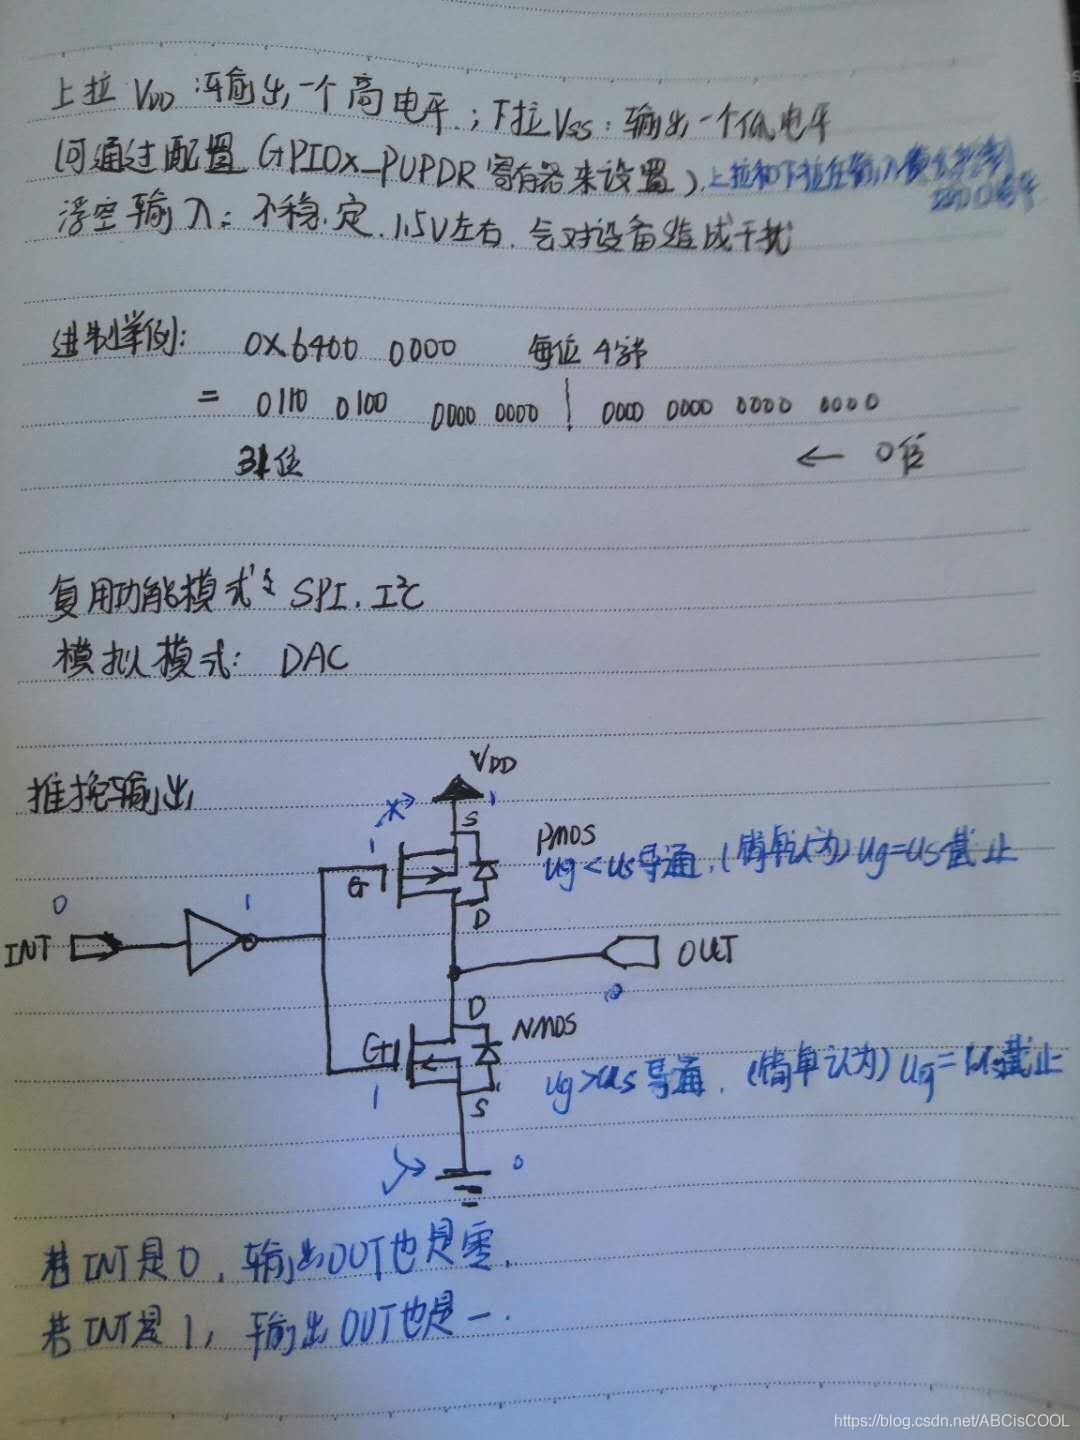 上拉 VDD：输出一个高电平.；下拉VSS：输出一个低电平
(可通过配置 GPIOx_PUPDR 寄存器来设置).上拉和下拉在输入模式
浮空输入：不稳定.1.5V左右.会对设备造成干扰
进制举例： 0X6400 0000 每位4字节
= 0110 0100 0000 0000 | 0000 0000 0000 0000
31位 ← 0位
复用功能模式：SPI、I²C
模拟模式：DAC
推挽输出
VDD
1
S
PMOS
1
G
Ug<Us导通.(简单认为)Ug=Us截止
D
0
1
INT
OUT
0
D
NMOS
G
1
Ug>Us导通.(简单认为)Ug=Us截止
S
0
若INT是0，输出OUT也是零.
若INT是1，输出OUT也是一.
https://blog.csdn.net/ABCisCOOL